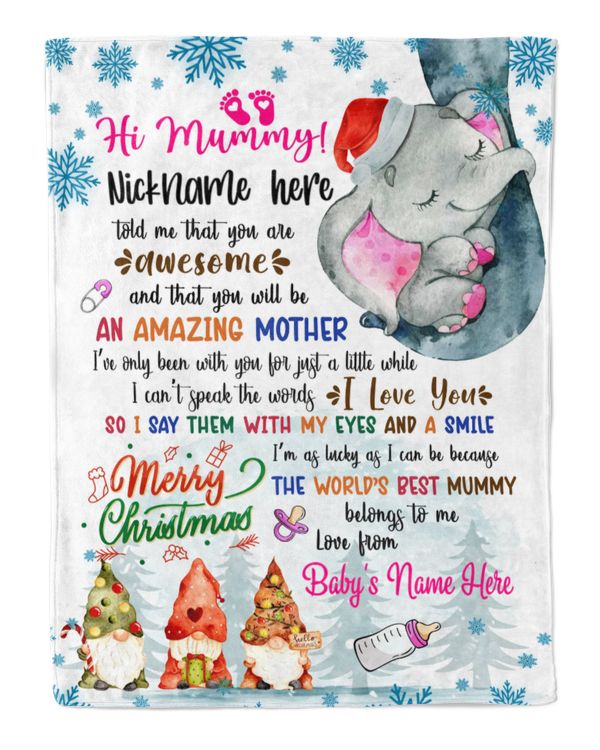 Hi Mummy!
Nickname here
told me that you are
awesome
and that you will be
AN AMAZING MOTHER
I've only been with you for just a little while
I can't speak the words I Love You
SO I SAY THEM WITH MY EYES AND A SMILE
I'm as lucky as I can be because
THE WORLD'S BEST MUMMY
belongs to me
Love from
Baby's Name Here
Merry
Christmas
hello